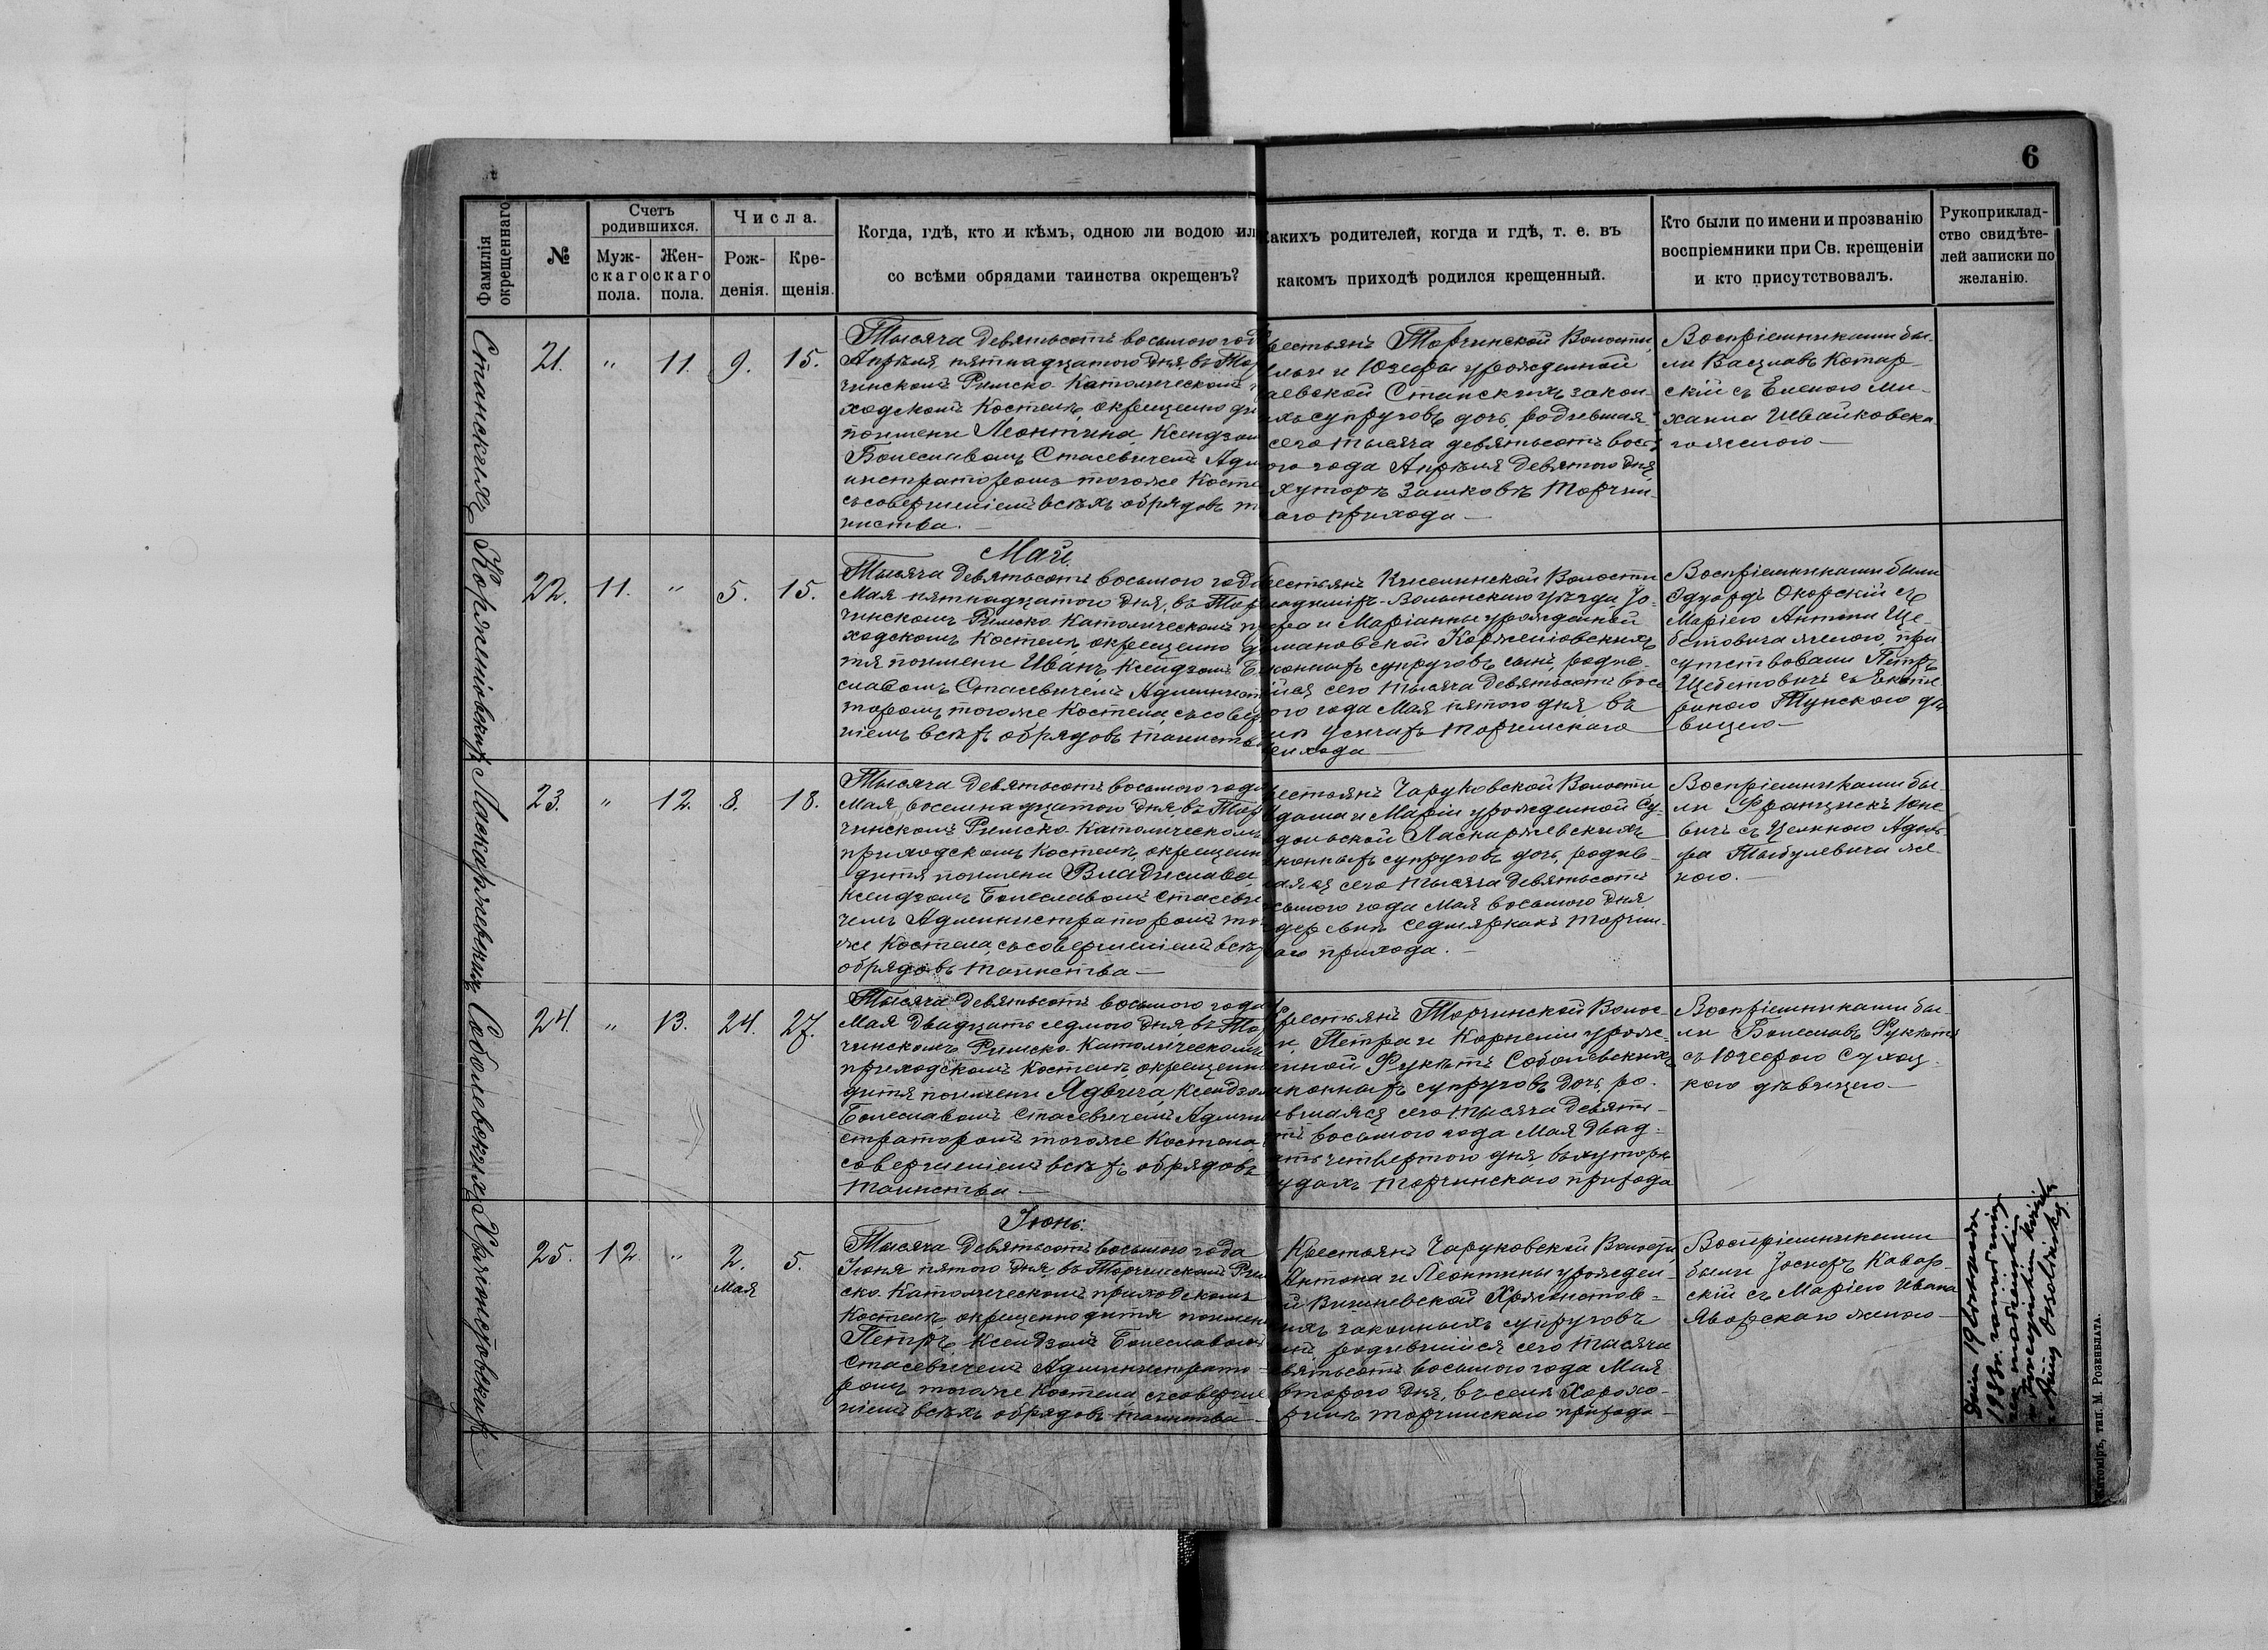 6
Фамилія окрещеннаго
№
Счетъ родившихся.
Муж-скаго пола.
Жен-скаго пола.
Числа.
Рож-денія.
Кре-щенія.
Когда, гдѣ, кто и кѣмъ, одною ли водою ил
со всѣми обрядами таинства окрещенъ?
какихъ родителей, когда и гдѣ, т. е. въ
какомъ приходѣ родился крещенный.
Кто были по имени и прозванію
воспріемники при Св. крещеніи
и кто присутствовалъ.
Рукоприклад-
ство свидѣте-
лей записки по
желанію.
Станскихъ
21. " 11. 9. 15.
Тысяча девятьсотъ восьмого год
Апрѣля пятнадцатого дня, въ Тор
чинскомъ Римско-Католическомъ
ходскомъ Костелѣ окрещено ди
по имени Леонтина Ксендзом
Болеславомъ Стасевичемъ Адм
инстраторомъ того же Косте
съ совершеніемъ всѣхъ обрядовъ т
инства. —
рестьянъ Торчинской Волости,
и Юзефы урожденной
аевской Станскихъ закон-
ихъ супруговъ дочь, родившая
сего тысяча девятьсотъ вось
ого года Апрѣля девятого дня,
хуторѣ Зашковъ Торчин-
аго прихода —
Воспріемниками бы-
ли Вацлавъ Котар-
скій съ Еленою Ми-
хаила Швайковска
го женою —
Коржениовскихъ
22. 11. " 5. 15.
Май.
Тысяча девятьсотъ восьмого года
Мая пятнадцатого дня, въ Тор
чинскомъ Римско-Католическомъ п
ходскомъ Костелѣ окрещено д
тя по имени Иванъ Ксендзомъ Б
славомъ Стасевичемъ Админист
торомъ того же Костела, съ совер
ніемъ всѣхъ обрядовъ таинства
рестьянъ Киселинской Волости
ладиміръ-Волынскаго уѣзда Іо-
фа и Маріанны урожденной
мановской Коржениовскихъ
конныхъ супруговъ сынъ, родив-
ійся сего тысяча девятьсотъ вос
ого года Мая пятого дня, въ
Усичахъ Торчинскаго
рихода —
Воспріемниками были
Эдуардъ Окорскій съ
Маріею Антона Ще-
бетовича женою, при
сутствовали Петръ
Щебетовичъ съ Екате
риною Тунского дѣ
вицею —
Ласкаржевскихъ
23. " 12. 8. 18.
Тысяча девятьсотъ восьмого года
Мая восемнадцатого дня, въ Тор
чинскомъ Римско-Католическомъ
приходскомъ Костелѣ, окрещен
дитя по имени Владислава
Ксендзомъ Болеславомъ Стасеви
чемъ Администраторомъ то
же Костела, съ совершеніемъ всѣх
обрядовъ таинства —
рестьянъ Чаруковской Волости
дама и Маріи урожденной Су-
дольской Ласкаржевскихъ
конныхъ супруговъ дочь, родив-
аяся сего тысяча девятьсотъ
сьмого года Мая восьмого дня,
деревнѣ Седмяркахъ Торчин-
аго прихода. —
Воспріемниками бы-
ли Францискъ Юне
вичъ съ Целиною Адоль-
фа Тыбулевича же-
ною. —
Соболевскихъ
24. " 13. 24. 27.
Тысяча девятьсотъ восьмого года
Мая двадцать седмого дня въ Тор
чинскомъ Римско-Католическомъ
приходскомъ Костелѣ, окрещено
дитя по имени Ядвига, Ксендзом
Болеславомъ Стасевичемъ Админи
страторомъ того же Костела,
совершеніемъ всѣхъ обрядовъ
таинства —
Крестьянъ Торчинской Волос-
и Петра и Корнеліи урож-
нной Рукѣтъ Соболевскихъ
аконныхъ супруговъ дочь, ро-
вшаяся сего тысяча девять-
тъ восьмого года Мая двад-
ать четвертого дня, въ хуторѣ
удахъ Торчинскаго прихода
Воспріемниками бы-
ли Болеславъ Рукѣтъ
съ Юзефою Сухоц-
кою дѣвицею —
Хржонстовскихъ
25. 12. " 2. Мая 5.
Іюнь.
Тысяча девятьсотъ восьмого года
Іюня пятого дня, въ Торчинскомъ Рим
ско-Католическомъ приходскомъ
Костелѣ, окрещено дитя по имен
Петръ, Ксендзомъ Болеславомъ
Стасевичемъ Администрато-
ромъ того же Костела, съ соверше
ніемъ всѣхъ обрядовъ таинства —
Крестьянъ Чаруковской Волости,
Антона и Леонтины урожден-
й Вишневской Хржонстов-
ихъ законныхъ супруговъ
родившійся сего тысяча
вятьсотъ восьмого года Мая
второго дня, въ селѣ Хорохо-
ринѣ Торчинскаго прихода —
Воспріемниками
были Іосифъ Кавар-
скій съ Маріею Ивана
Яворскаго женою —
Dnia 19 listopada
1933 r. zawarł związ
małżeński
w Torczyńskim kościele
z Anną Osolińską.
Житоміръ, тип. М. Розенблата.